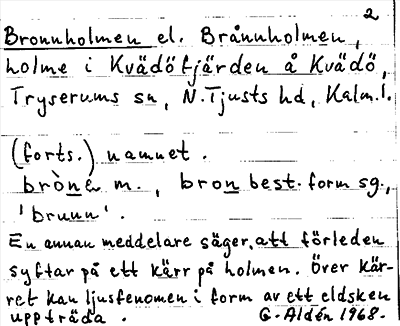 2
Bronnholmen el. Brånnholmen,
holme i Kvädöfjärden å Kvädö,
Tryserums sn, N. Tjusts hd, Kalm. l.
(forts.) namnet.
brònè m., bron best. form sg.,
'brunn'.
En annan meddelare säger, att förleden
syftar på ett kärr på holmen. Över kär-
ret kan ljusfenomen i form av ett eldsken
uppträda. G. Aldén 1968.